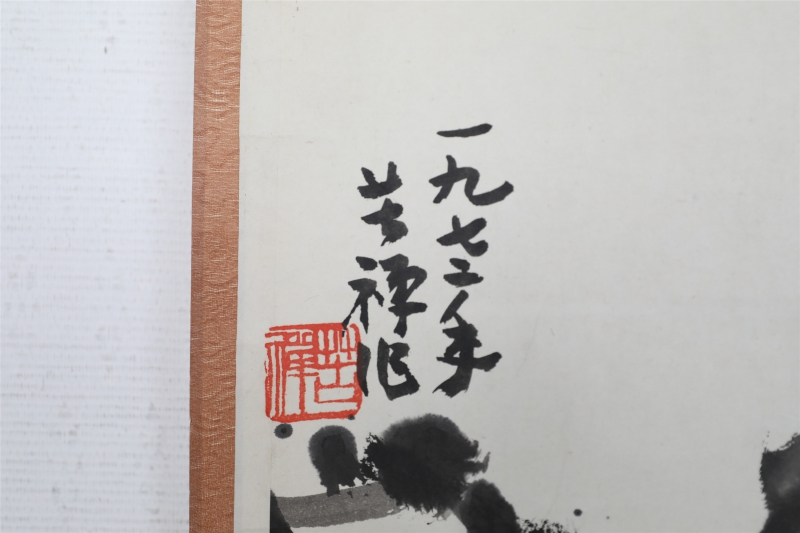 一九七二年
苦禅作
苦禪